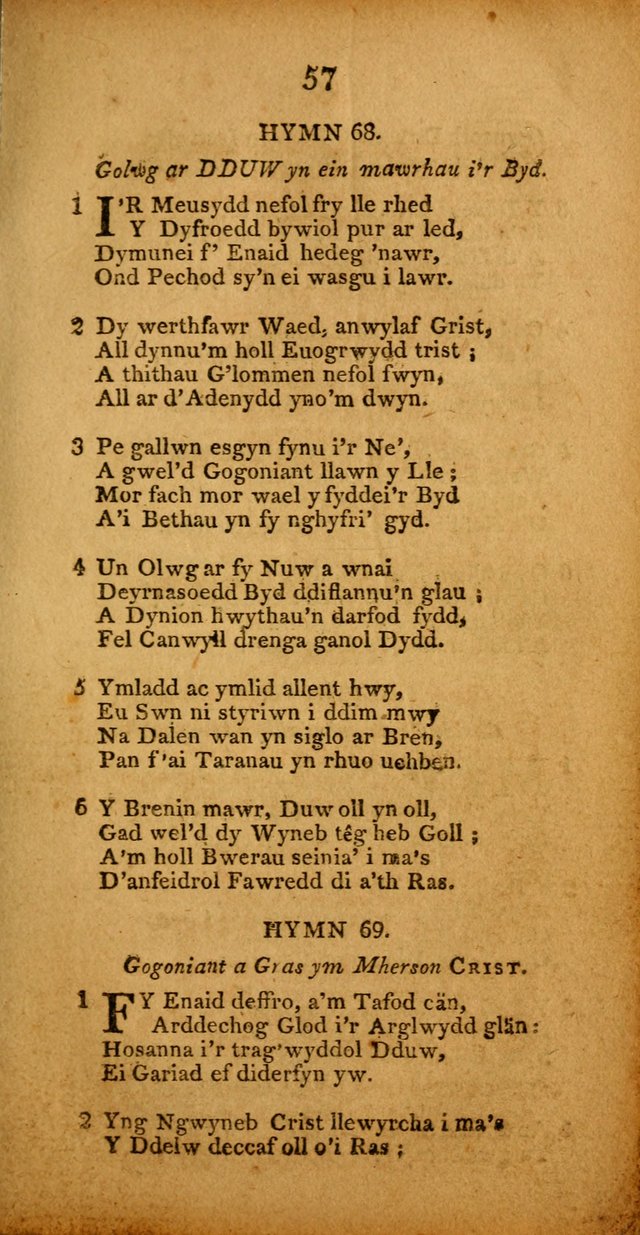 57
HYMN 68.
Golwg ar DDUW yn ein mawrhau i'r Byd.
1 I'R Meusydd nefol fry lle rhed
Y Dyfroedd bywiol pur ar led,
Dymunei f' Enaid hedeg 'nawr,
Ond Pechod sy'n ei wasgu i lawr.
2 Dy werthfawr Waed, anwylaf Grist,
All dynnu'm holl Euogrwydd trist ;
A thithau G'lommen nefol fwyn,
All ar d'Adenydd yno'm dwyn.
3 Pe gallwn esgyn fynu i'r Ne',
A gwel'd Gogoniant llawn y Lle ;
Mor fach mor wael y fyddei'r Byd
A'i Bethau yn fy nghyfri' gyd.
4 Un Olwg ar fy Nuw a wnai
Deyrnasoedd Byd ddiflannu'n glau ;
A Dynion hwythau'n darfod fydd,
Fel Canwyll drenga ganol Dydd.
5 Ymladd ac ymlid allent hwy,
Eu Swn ni styriwn i ddim mwy
Na Dalen wan yn siglo ar Bren,
Pan f'ai Taranau yn rhuo uchben.
6 Y Brenin mawr, Duw oll yn oll,
Gad wel'd dy Wyneb têg heb Goll ;
A'm holl Bwerau seinia' i ma's
D'anfeidrol Fawredd di a'th Ras.
HYMN 69.
Gogoniant a Gras ym Mherson CRIST.
1 FY Enaid deffro, a'm Tafod cän,
Arddechog Glod i'r Arglwydd glän:
Hosanna i'r trag'wyddol Dduw,
Ei Gariad ef diderfyn yw.
2 Yng Ngwyneb Crist llewyrcha i ma's
Y Ddelw deccaf oll o'i Ras ;